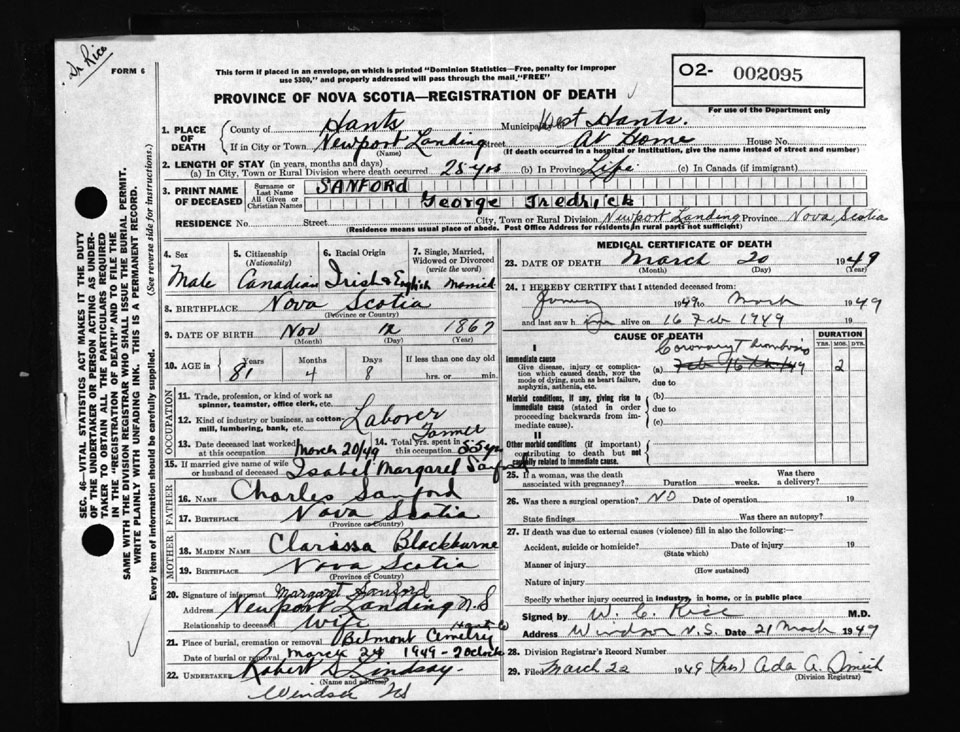 Dr Rice
FORM 6
This form if placed in an envelope, on which is printed "Dominion Statistics—Free, penalty for improper
use $300," and properly addressed will pass through the mail, "FREE"
O2- 002095
For use of the Department only
PROVINCE OF NOVA SCOTIA—REGISTRATION OF DEATH
1. PLACE OF DEATH
County of Hants Municipality West Hants.
If in City or Town Newport Landing Street At Home House No.
(Name) (If death occurred in a hospital or institution, give the name instead of street and number)
2. LENGTH OF STAY (in years, months and days)
(a) In City, Town or Rural Division where death occurred 28 yrs (b) In Province Life (c) In Canada (if immigrant)
3. PRINT NAME OF DECEASED
Surname or Last Name SANFORD
All Given or Christian Names George Fredrick
RESIDENCE No. Street City, Town or Rural Division Newport Landing Province Nova Scotia
(Residence means usual place of abode. Post Office Address for residents in rural parts not sufficient)
4. Sex 5. Citizenship (Nationality) 6. Racial Origin 7. Single, Married, Widowed or Divorced (write the word)
Male Canadian Irish & English Married
8. BIRTHPLACE Nova Scotia
(Province or Country)
9. DATE OF BIRTH Nov 12 1867
(Month) (Day) (Year)
10. AGE in Years Months Days If less than one day old
81 4 8 hrs. or min.
OCCUPATION
11. Trade, profession, or kind of work as
spinner, teamster, office clerk, etc.
12. Kind of industry or business, as cotton-
mill, lumbering, bank, etc.
Laborer
Farmer
13. Date deceased last worked at this occupation March 20/49 14. Total yrs. spent in this occupation 55 yrs
15. If married give name of wife or husband of deceased Isabel Margaret Sanford
FATHER
16. NAME Charles Sanford
17. BIRTHPLACE Nova Scotia
(Province or Country)
MOTHER
18. MAIDEN NAME Clarissa Blackburne
19. BIRTHPLACE Nova Scotia
(Province or Country)
20. Signature of informant Margaret Sanford
Address Newport Landing N.S
Relationship to deceased Wife
21. Place of burial, cremation or removal Belmont Cemetry Hants Co
Date of burial or removal March 24 1949 - 2 oclock
22. UNDERTAKER Robert S Lindsay.
(Name and address)
Windsor
MEDICAL CERTIFICATE OF DEATH
23. DATE OF DEATH March 20 1949
(Month) (Day) (Year)
24. I HEREBY CERTIFY that I attended deceased from:
1949 to March 1949
and last saw him alive on 16 Feb 1949 19
CAUSE OF DEATH DURATION
YRS. MOS. DYS.
I
Immediate cause
Give disease, injury or complica-
tion which caused death, NOT the
mode of dying, such as heart failure,
asphyxia, asthenia, etc.
Coronary Thrombosis
(a) Feb 16th/49 2
due to
Morbid conditions, if any, giving rise to
immediate cause (stated in order
proceeding backwards from im-
mediate cause).
(b)
due to
(c)
II
Other morbid conditions (if important)
contributing to death but not
causally related to immediate cause.
25. If a woman, was the death associated with pregnancy? Duration weeks. Was there a delivery?
26. Was there a surgical operation? NO Date of operation 19
State findings Was there an autopsy?
27. If death was due to external causes (violence) fill in also the following:—
Accident, suicide or homicide? Date of injury 19
(State which)
Manner of injury
(How sustained)
Nature of injury
Specify whether injury occurred in industry, in home, or in public place
Signed by W. C. Rice M.D.
Address Windsor N.S. Date 21 March 1949
28. Division Registrar's Record Number
29. Filed March 22 1949 (Mrs) Ada A.
(Division Registrar)
SEC. 46—VITAL STATISTICS ACT MAKES IT THE DUTY
OF THE UNDERTAKER OR PERSON ACTING AS UNDER-
TAKER TO OBTAIN ALL THE PARTICULARS REQUIRED
IN THE "REGISTRATION OF DEATH" AND TO FILE THE
SAME WITH THE DIVISION REGISTRAR WHO SHALL ISSUE THE BURIAL PERMIT.
WRITE PLAINLY WITH UNFADING INK. THIS IS A PERMANENT RECORD.
Every item of information should be carefully supplied. (See reverse side for instructions.)